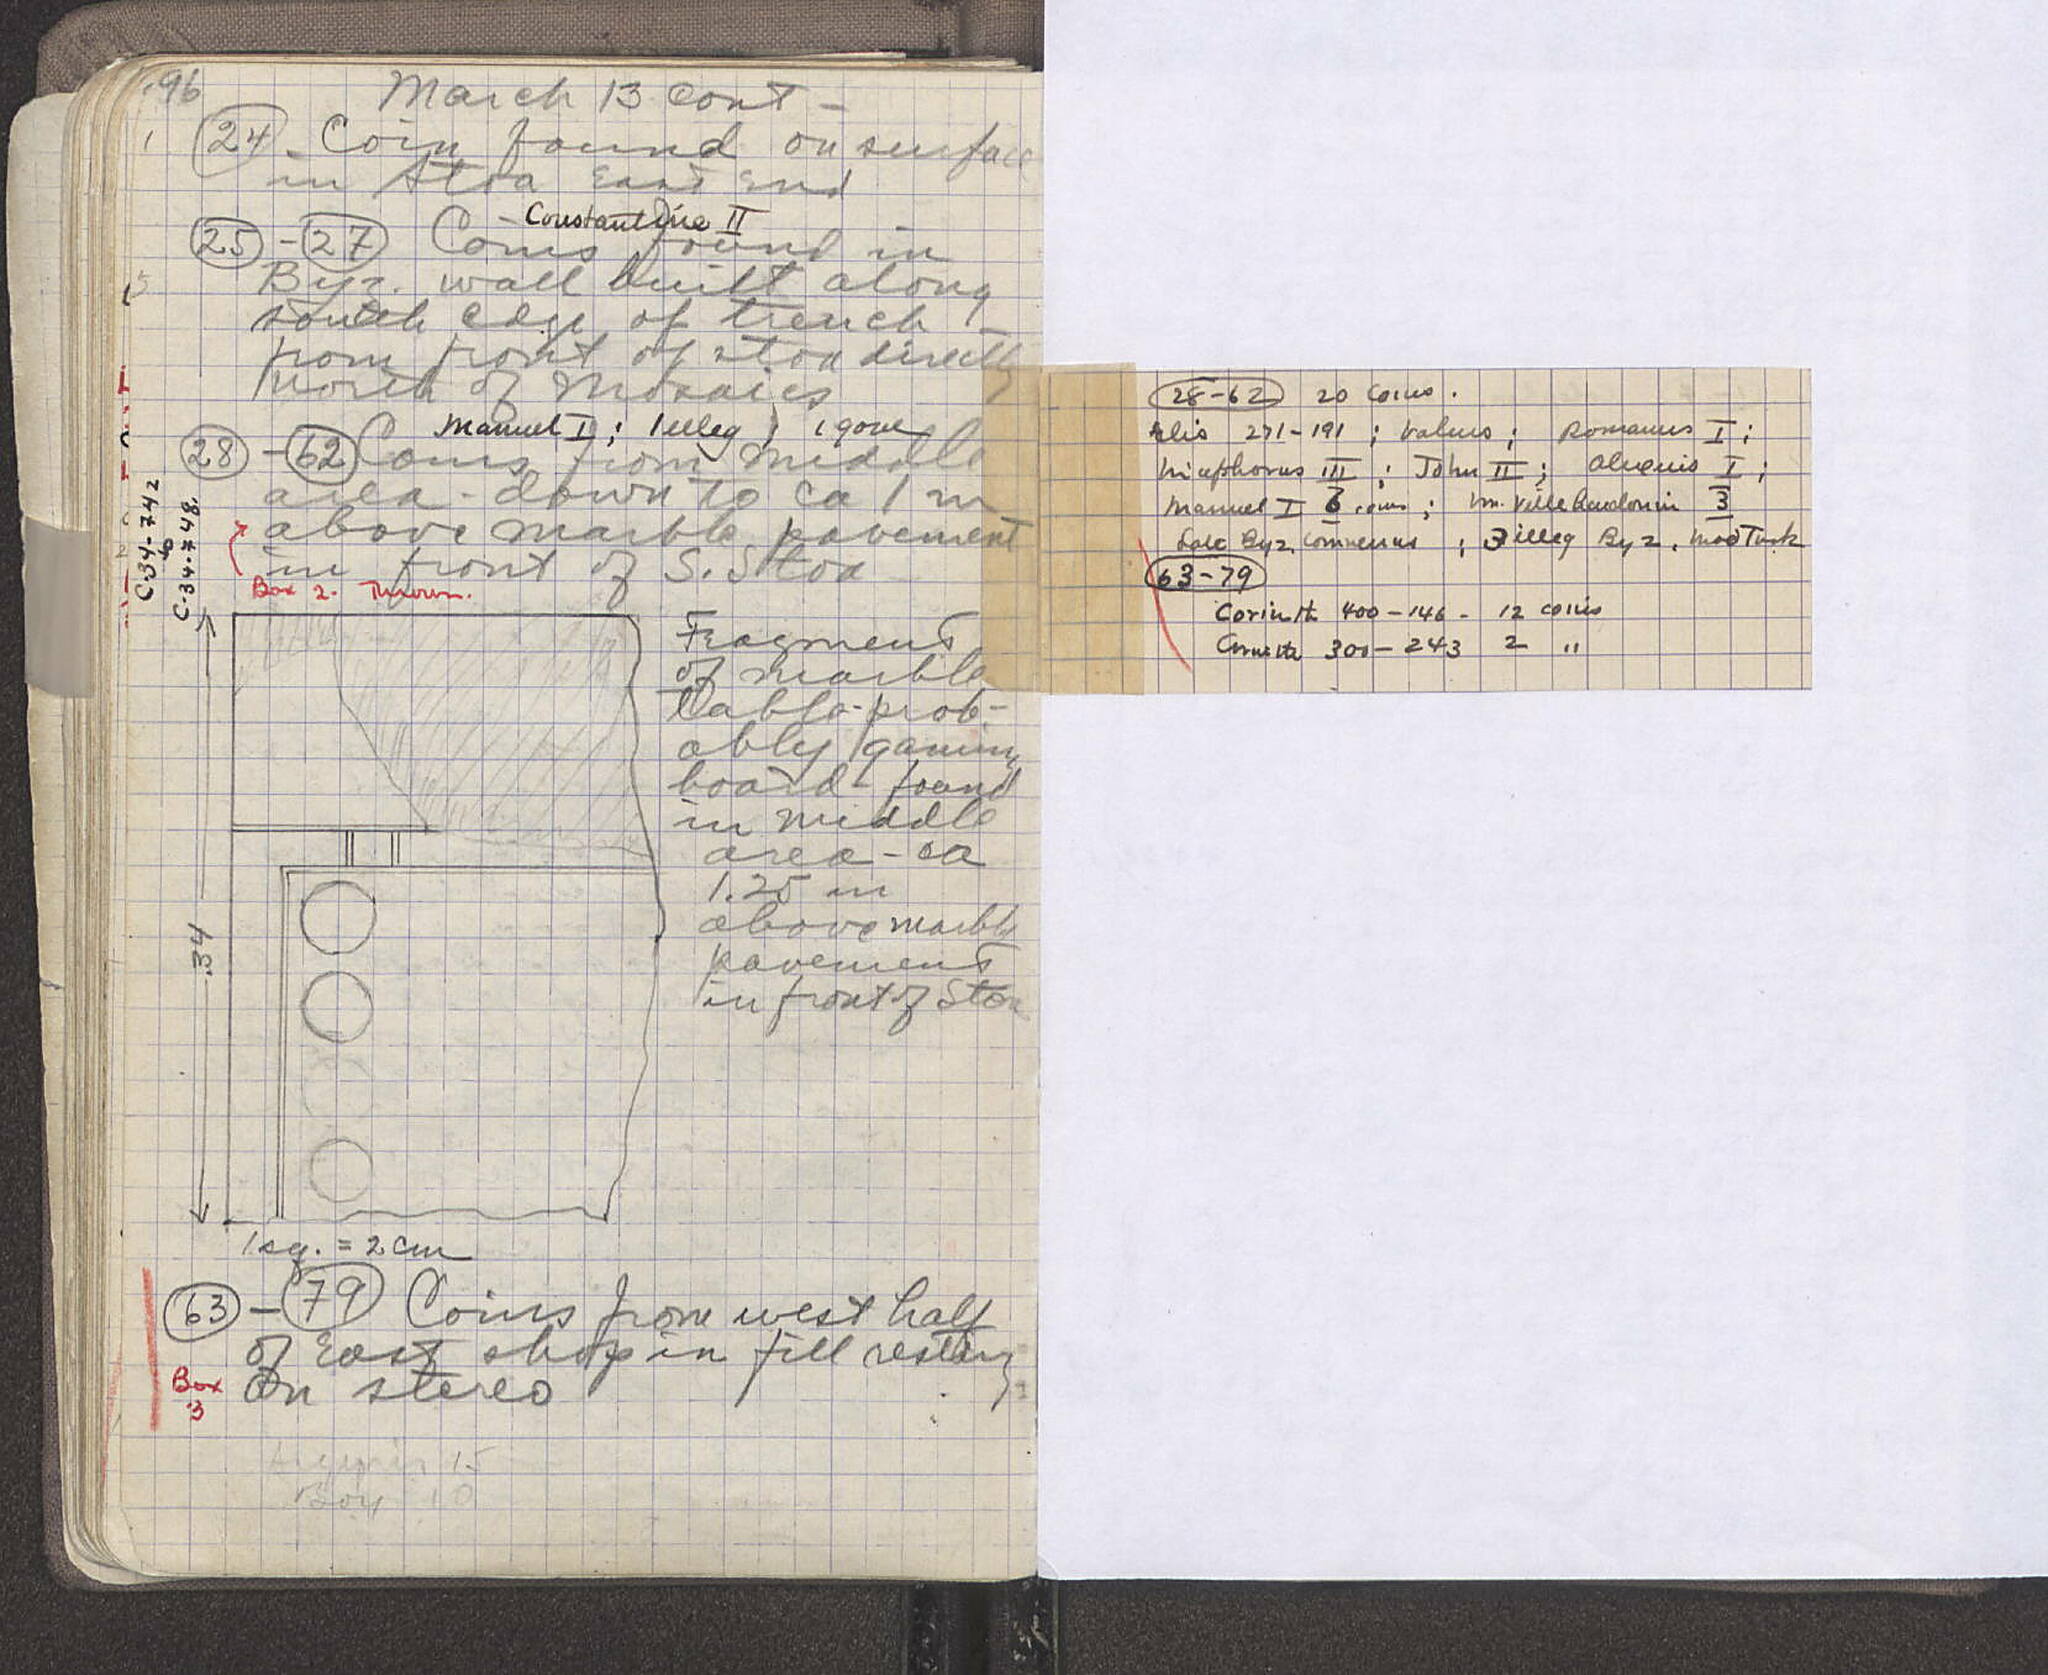 196
March 13 cont -
1 24 - Coin found on surface
in Stoa East End
Constantine II
25 - 27 Coins found in
Byz. wall built along
south edge of trench -
from front of stoa directly
north of Mosaics
Manuel I; 1 illeg; 1 gone
28 - 62 Coins from middle
area - down to ca 1 m
above marble pavement
in front of S. Stoa
Box 2. Thrown.
C-34-742
to
C-34-748.
Fragment
of marble
table - prob-
ably gaming
board - found
in middle
area - ca
1.25 m
above marble
pavement
in front of Stoa
.34
1 sq. = 2 cm
63 - 79 Coins from west half
of East shop in fill resting
on stereo
Box
3
15
Boy 10
28-62 20 coins.
Elis 271-191; Valens; Romanus I;
Nicephorus III; John II; Alexius I;
Manuel I 6 coins; Wm. Villehardouin 3
Late Byz. Comnenus; 3 illeg Byz. Mod Turk
63-79
Corinth 400-146 - 12 coins
Corinth 300-243 2 "